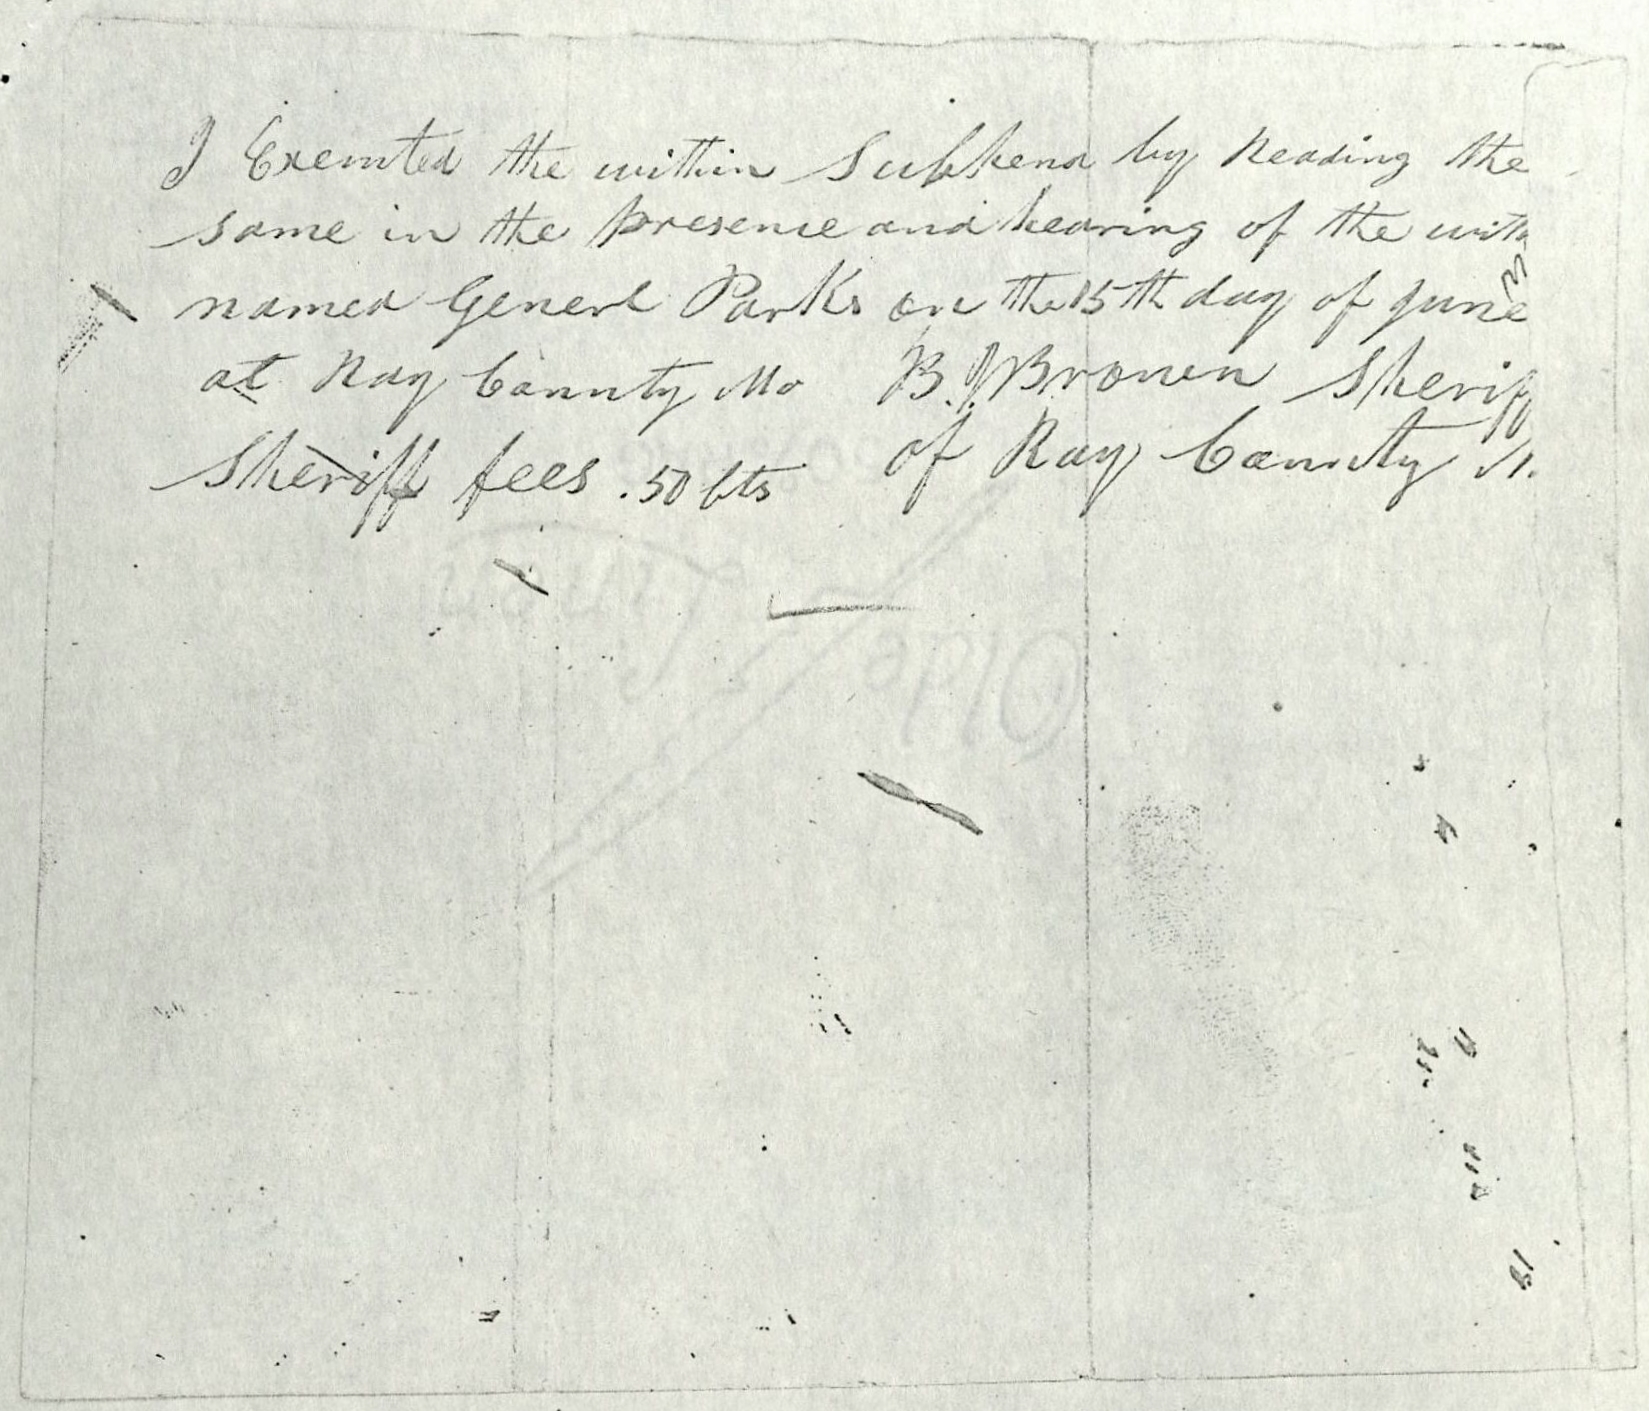 I Executed the within Subpena by Reading the
same in the presence and hearing of the with
in
named Generl Parks on the 15th day of June
at Ray County Mo B. J. Brown Sheriff
Sheriff fees .50 Cts of Ray County M.
Olde